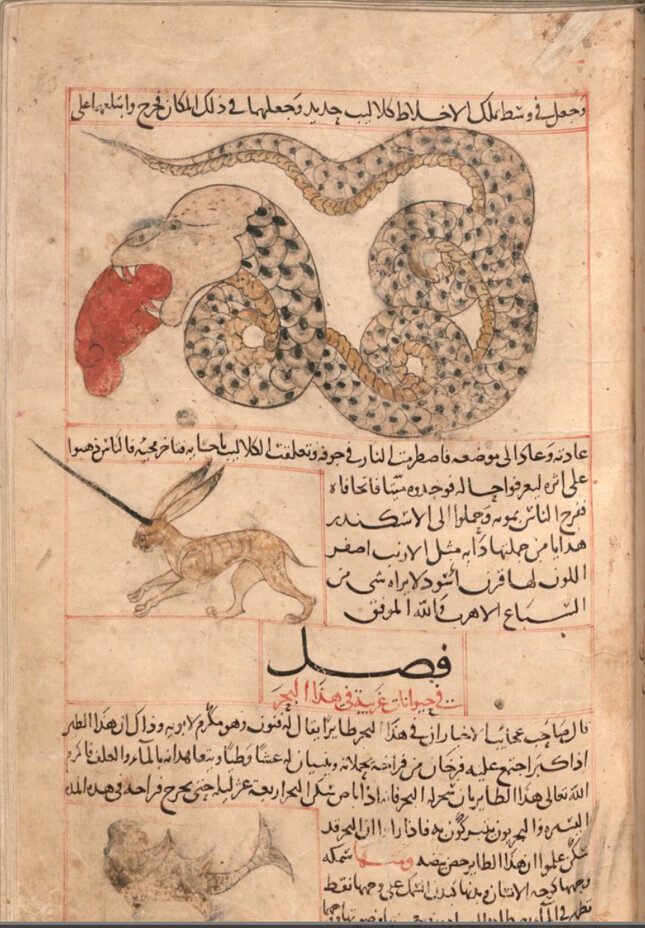 وجعل في وسط تلك الاخلاط كلاليب حديد وجعلهما في ذلك المكان فخرج وابتلعهما على
عادته وعاد الى موضعه فاضطرمت النار في جوفه وتعلقت الكلاليب باحشائه فمات فالناس ذهبوا
على اثره ليعرفوا حاله فوجدوه ميتا فاتحا فاه
ففرح الناس بموته وحملوا الى الاسكندر
هدايا من جملتها دابه مثل الارنب اصفر
اللون لها قرن اسود لا يراه شى من
السباع الا هرب والله الموفق
فصل
في حيوانات غريبة في هذا البحر
قال صاحب عجايب الاخبار ان في هذا البحر طايرا يقال له فنون وهو مكرم لابويه وذاك ان هذا الطير
اذا كبرا اجتمع عليه فرخان من فراخه يحملانه ويبنيان له عشا وطيا ويتعاهدانه بالماء والعلف فاكرم
الله تعالى هذا الطاير بان سخر له البحر فانه اذا باض سكن البحر اربعة عشر ليلة حتى يخرج فراخه في هذه المدة
اليسيره والبحريون يتبركون به فاذا راوا ان البحر قد
سكن علموا ان هذا الطاير حضن بيضه ومنها سمكه
وجهها كوجه الانسان وبدنها كبدن السمك على وجهها نقط
تظهر في الماء